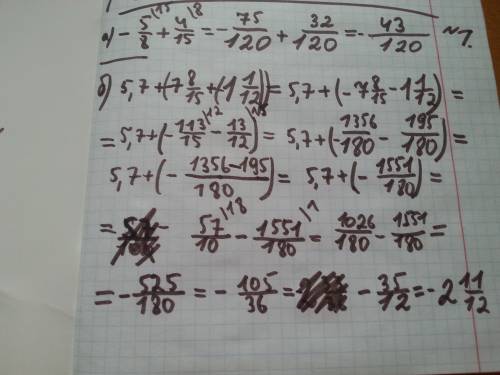 а) - 5/8 \15 + 4/15 \8 = - 75/120 + 32/120 = - 43/120 ~1.
б) 5,7+(7 8/15 +(1 1/12)) = 5,7+(-7 8/15 - 1 1/12) =
= 5,7+(- 113/15 \12 - 13/12 \15) = 5,7+(1356/180 - 195/180) =
5,7+(- 1356-195/180) = 5,7+(- 1551/180) =
= 57/10 \18 - 1551/180 \1 = 1026/180 - 1551/180 =
= - 525/180 = - 105/36 = - 35/12 = - 2 11/12